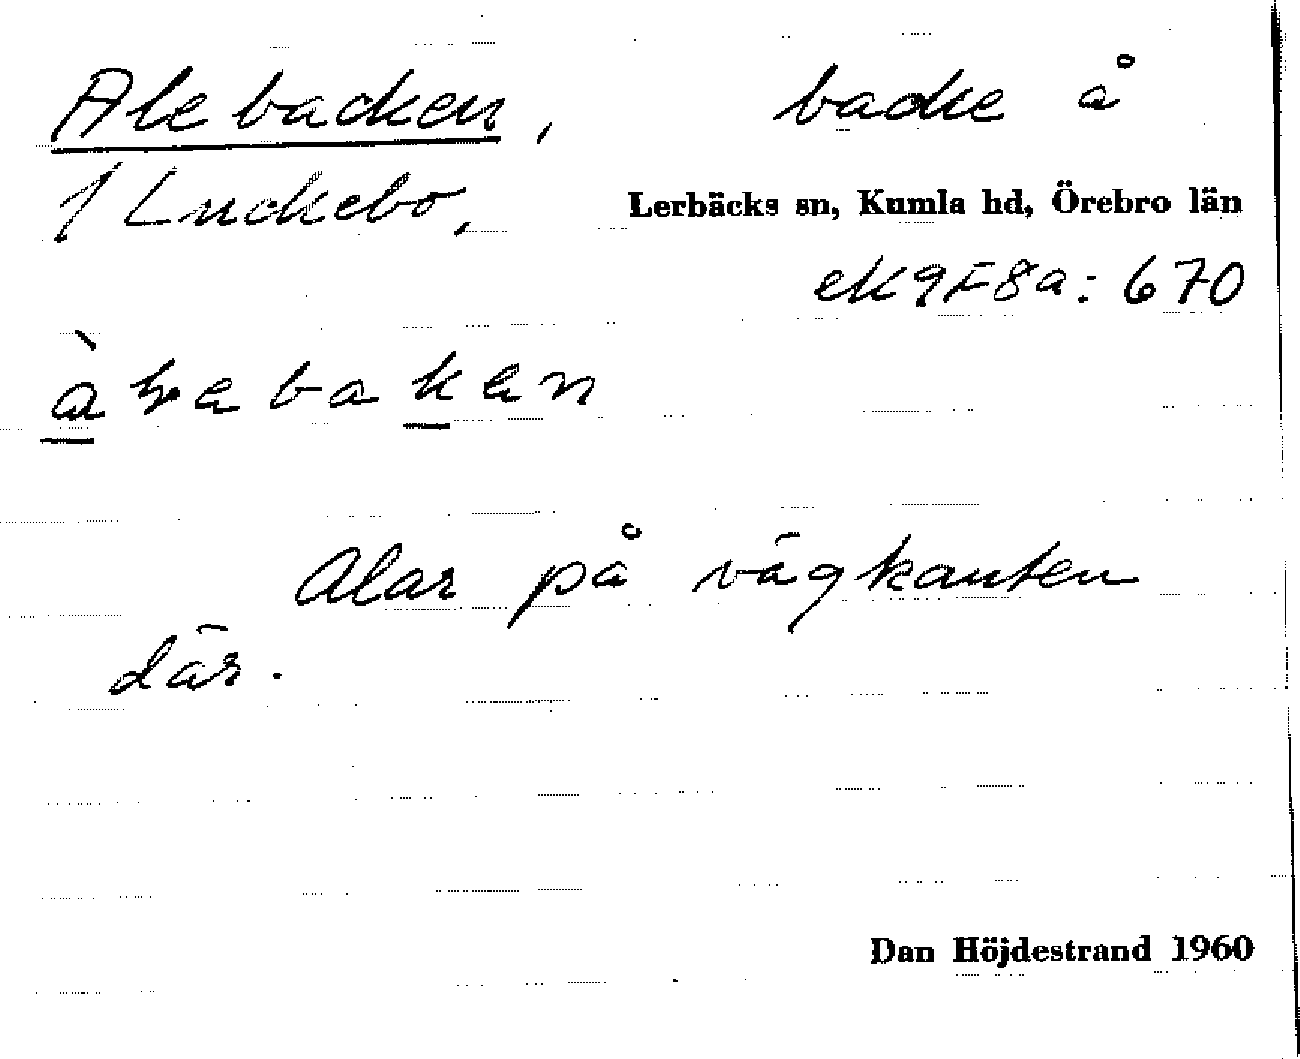 Alebacken, backe å
1/ Luckebo, Lerbäcks sn, Kumla hd, Örebro län
ek 9F8a: 670
Alar på vägkanten
där.
Dan Höjdestrand 1960